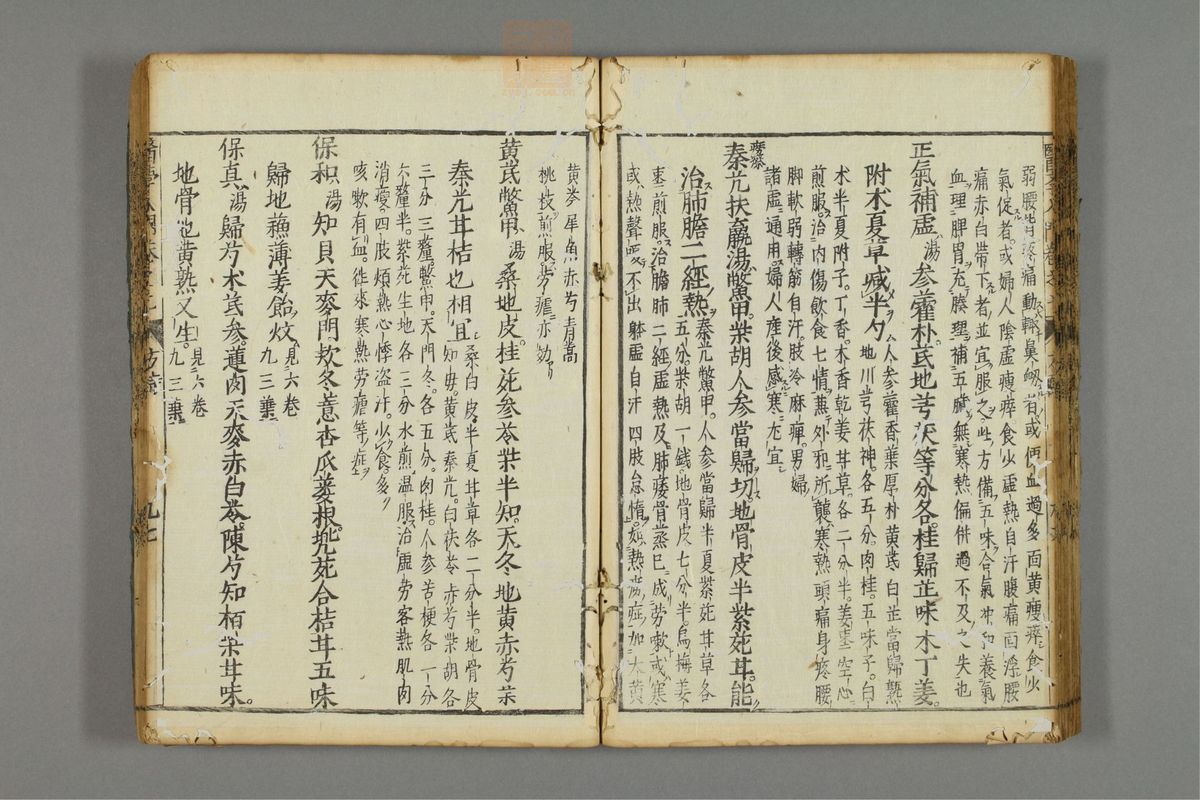 弱腰背疼痛動輙鼻衂者或便血過多面黄瘦瘁食少
氣促者或婦人陰虛瘦瘁食少虛熱自汗腹痛面浮腰
痛赤白帶下者並宜服之此方備五味合氣冲和養氣
血理脾胃充腠理補五臟無寒熱偏併過不及之失也
正氣補虛湯 参藿朴芪地芎茯等分各桂歸芷味木丁姜
附术夏草减半勺 人参藿香葉厚朴黄芪白芷當歸熟
地川芎茯神各五分肉桂五味子白
术半夏附子丁香木香乾姜甘草各二分半姜棗空心
煎服治内傷飲食七情兼外邪所襲寒熱頭痛身疼腰
脚軟弱轉筋自汗肢冷麻痺男婦
諸虛通用婦人産後感寒尢宜
秦艽扶羸湯鱉甲柴胡人参當歸切地骨皮半紫菀甘能
治肺膽二經熱 秦艽鱉甲人参當歸半夏紫菀甘草各
五分柴胡一錢地骨皮七分半烏梅姜
棗煎服治膽肺二經虛熱及肺痿骨蒸已成勞嗽或寒
或熱聲嗄不出躰虛自汗四肢怠惰如熱勞症加大黄
黄芩犀角赤芍青蒿
桃枝煎服劳瘧亦効
黄芪鱉甲湯 桑地皮桂菀参苓柴半知天冬地黄赤芍芣
秦艽甘桔也相宜 桑白皮半夏甘草各二分半地骨皮
知毋黄芪秦艽白茯苓赤芍柴胡各
三分三釐鱉甲天門冬各五分肉桂人参苦梗各一分
六釐半紫菀生地各三分水煎温服治虛劳客熱肌肉
消瘦四肢煩熱心悸盗汗少食多
咳嗽有血徃來寒熱劳瘵等症
保和湯 知貝天麥門欵冬薏杏瓜蔞根兠菀合桔甘五味
歸地蘓薄姜飴炆 見六卷
九三葉
保真湯 歸芍术芪参蓮肉天麥赤白苓陳芍知栢柴甘味
地骨地黄熟又生 見六卷
九三葉